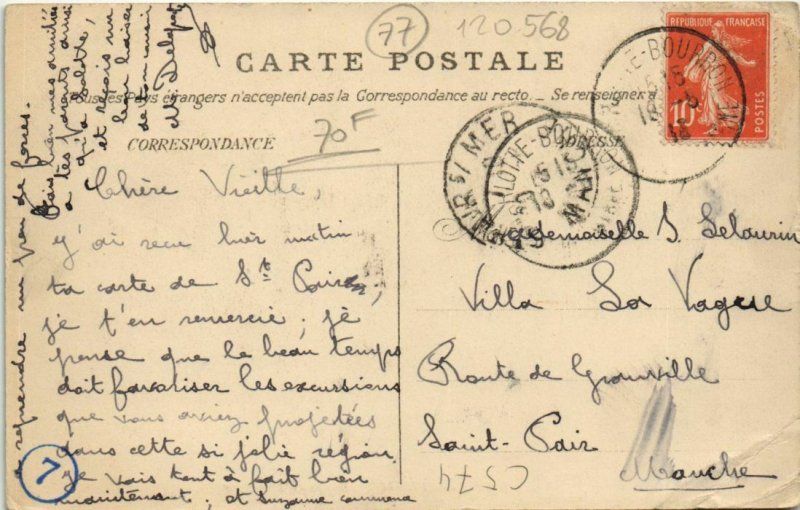 77
120.568
CARTE POSTALE
Tous les Pays étrangers n'acceptent pas la Correspondance au recto. _ Se renseigner à
70F
CORRESPONDANCE
ADRESSE
RÉPUBLIQUE FRANÇAISE
10c
POSTES
Chère Vieille,
j'ai recu hier matin
ta carte de St Pair,
je t'en remercie; je
pense que le beau temps
doit favoriser les excursions
que vous aviez projetées
dans cette si jolie région.
Je vais tout à fait bien
maintenant; et Suzanne commence
à reprendre un peu de forces.
Fais bien mes amitiés
à tes parents ainsi
qu'à
et reçois un
bon baiser
de ton amie
M
Mademoiselle S. Selaurin
Villa La Vague
Route de Granville
Saint-Pair
Manche
7
C574